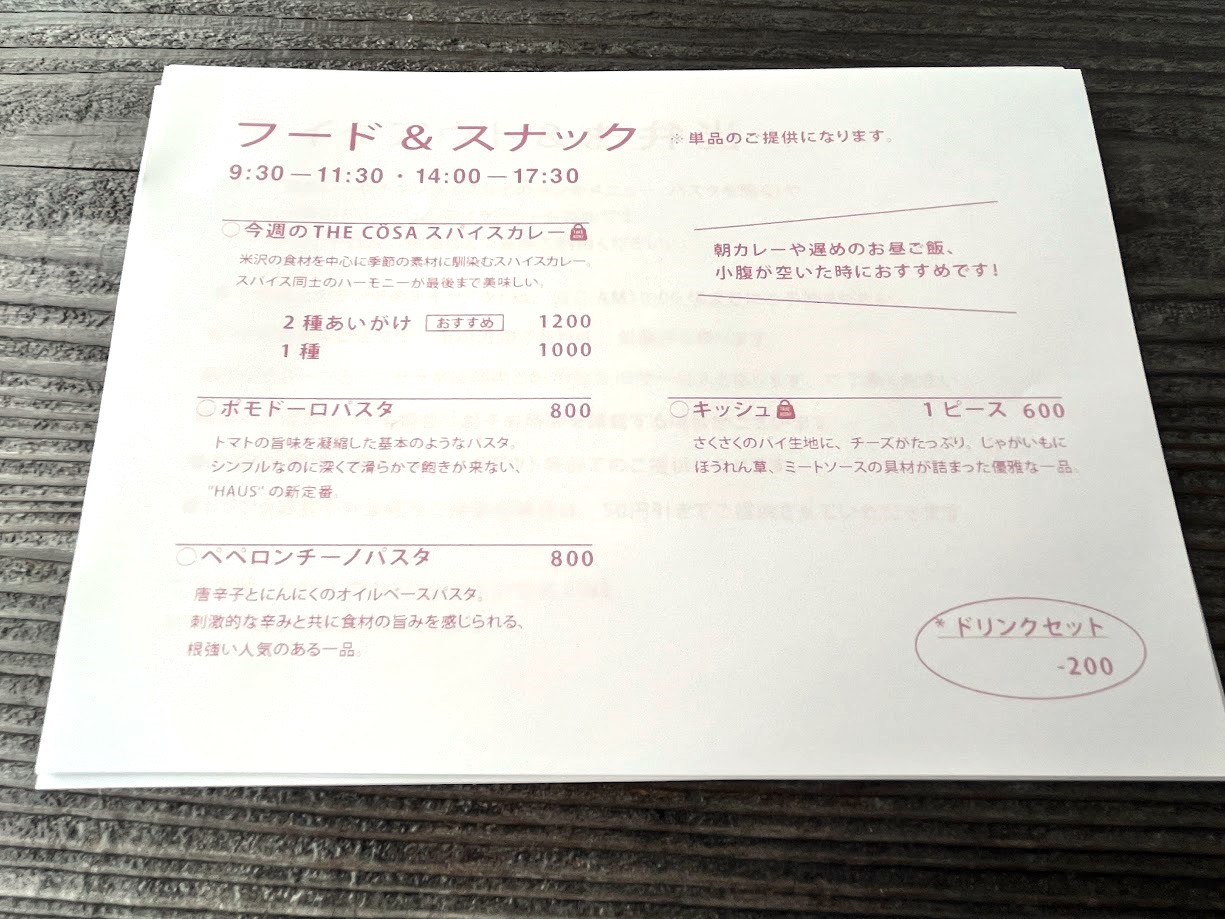 フード & スナック ※単品のご提供になります。
9:30 — 11:30 ・ 14:00 — 17:30
○今週の THE CÖSA スパイスカレー
米沢の食材を中心に季節の素材に馴染むスパイスカレー。
スパイス同士のハーモニーが最後まで美味しい。
2 種あいがけ おすすめ 1200
1 種 1000
朝カレーや遅めのお昼ご飯、
小腹が空いた時におすすめです!
○ポモドーロパスタ 800
トマトの旨味を凝縮した基本のようなパスタ。
シンプルなのに深くて滑らかで飽きが来ない、
"HAUS" の新定番。
○キッシュ 1 ピース 600
さくさくのパイ生地に、チーズがたっぷり。じゃがいもに
ほうれん草、ミートソースの具材が詰まった優雅な一品。
○ペペロンチーノパスタ 800
唐辛子とにんにくのオイルベースパスタ。
刺激的な辛みと共に食材の旨みを感じられる、
根強い人気のある一品。
* ドリンクセット
-200